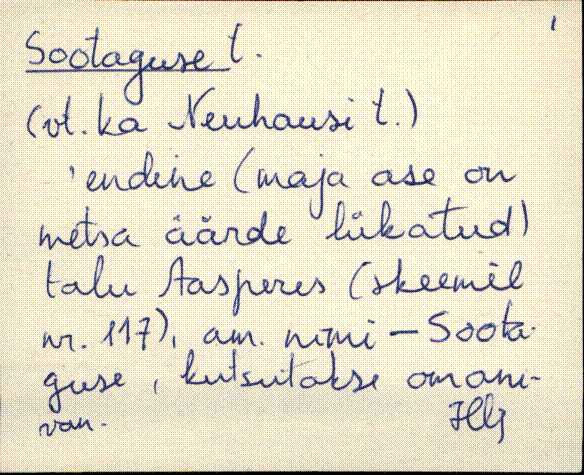 1
Sootaguse t.
(vt. ka Neuhausi t.)
'endine (maja ase on
metsa äärde lükatud)
talu Aasperes (skeemil
nr. 117), am. nimi – Soota-
guse, kutsutakse omani-
van.